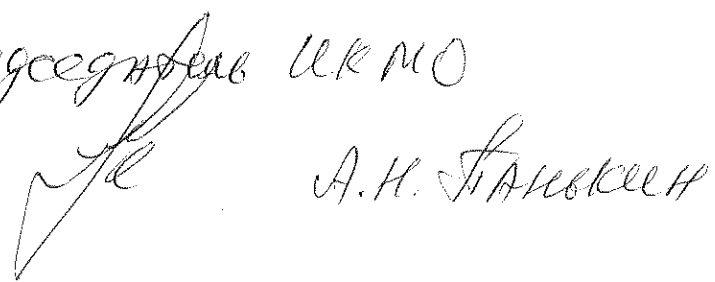 дседатель ИКМО
А.Н. Панькин